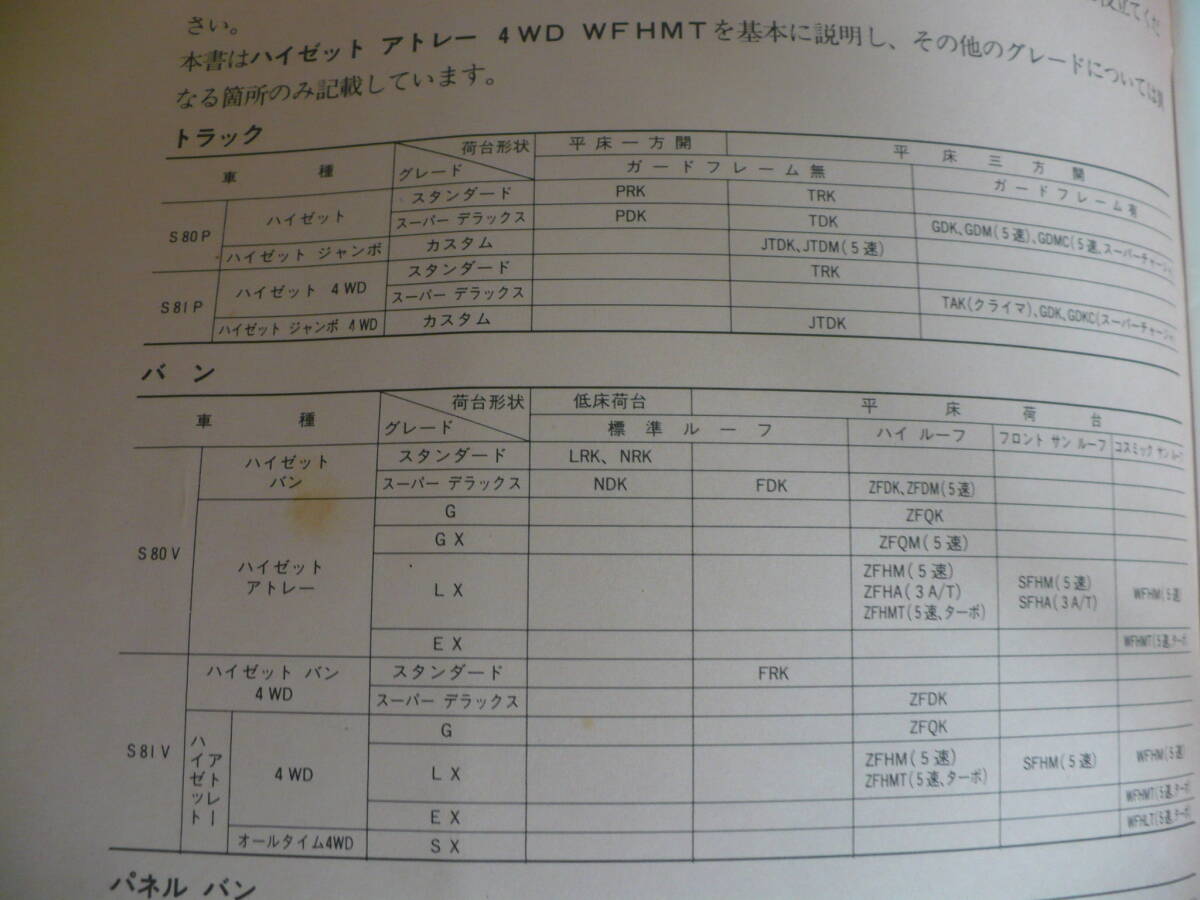 役立てくだ
さい。
本書はハイゼット アトレー 4WD WFHMTを基本に説明し、その他のグレードについては異
なる箇所のみ記載しています。
トラック
車 種 荷台形状 グレード 平床一方開 平床三方開
ガードフレーム無 ガードフレーム有
S80P ハイゼット スタンダード PRK TRK
スーパー デラックス PDK TDK GDK、GDM(5速)、GDMC(5速、スーパーチャージャ
ハイゼット ジャンボ カスタム JTDK、JTDM(5速)
S81P ハイゼット 4WD スタンダード TRK
スーパー デラックス TAK(クライマ)、GDK、GDKC(スーパーチャージャ
ハイゼット ジャンボ 4WD カスタム JTDK
バン
車 種 荷台形状 グレード 低床荷台 平床荷台
標準ルーフ ハイ ルーフ フロント サン ルーフ コスミック サン ルーフ
S80V ハイゼット バン スタンダード LRK、NRK
スーパー デラックス NDK FDK ZFDK、ZFDM(5速)
ハイゼット アトレー G ZFQK
GX ZFQM(5速)
LX ZFHM(5速) SFHM(5速) WFHM(5速)
ZFHA(3A/T) SFHA(3A/T)
ZFHMT(5速、ターボ)
EX WFHMT(5速、ターボ
S81V ハイゼット バン 4WD スタンダード FRK
スーパー デラックス ZFDK
ハイゼット アトレー 4WD G ZFQK
LX ZFHM(5速) SFHM(5速) WFHM(5速)
ZFHMT(5速、ターボ)
EX WFHMT(5速、ターボ
オールタイム4WD SX WFHLT(5速、ターボ
パネル バン